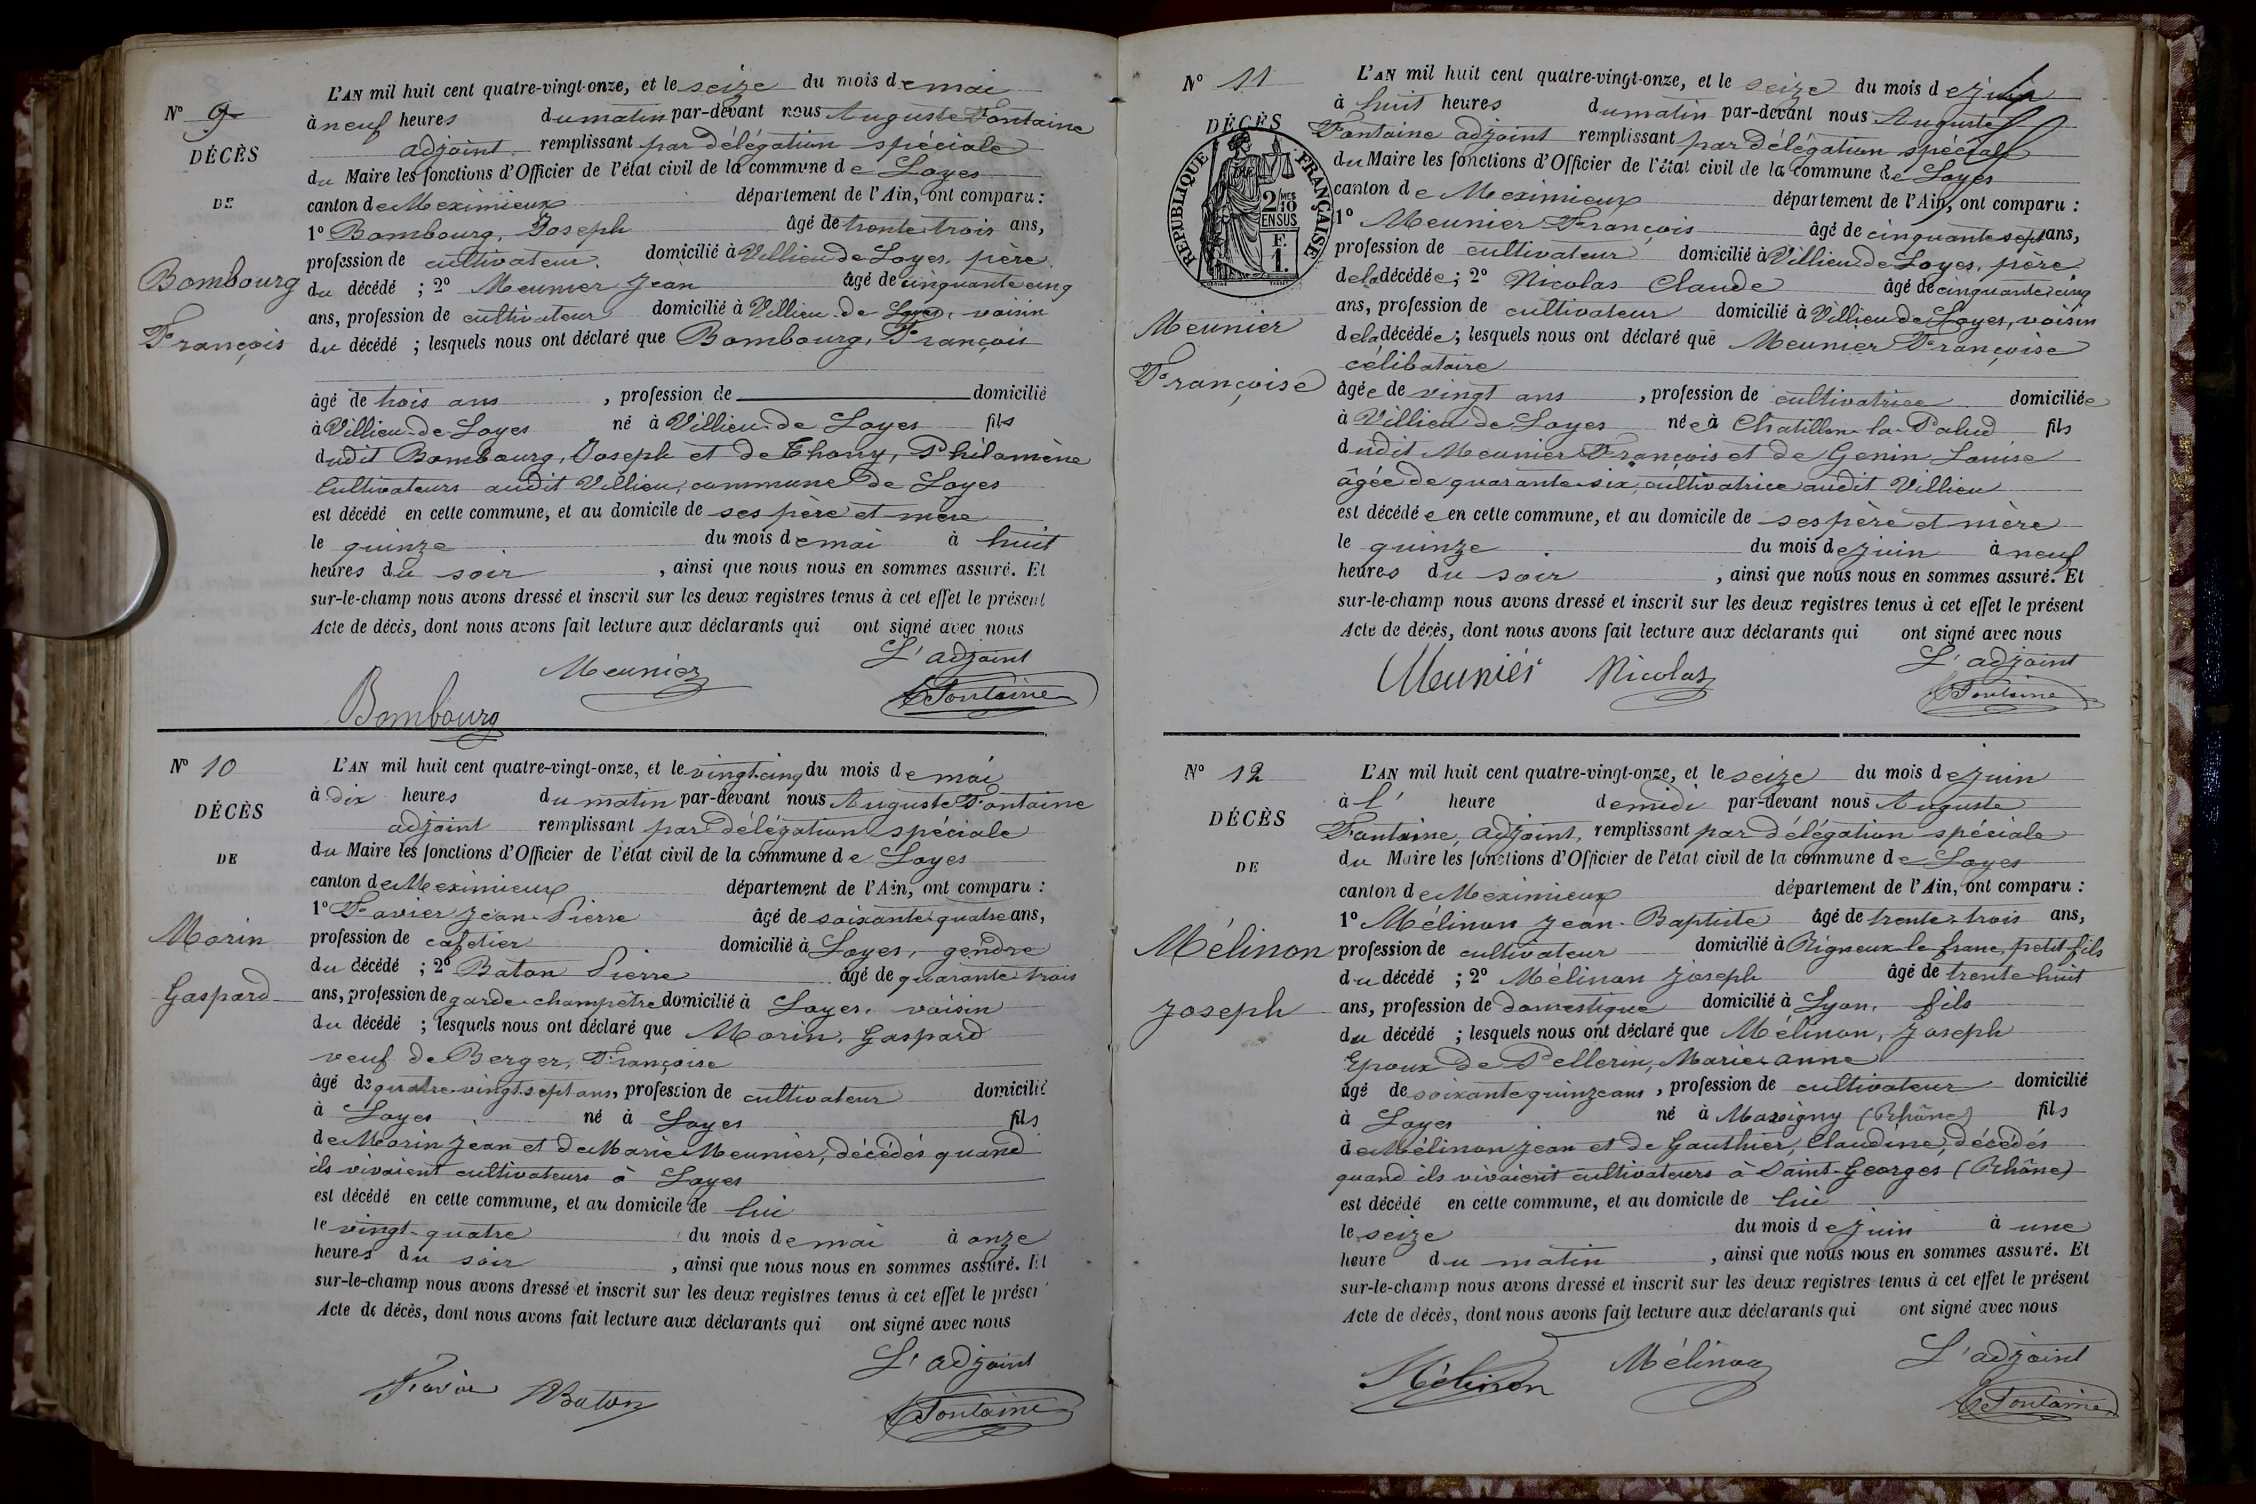 N° 9
DÉCÈS
DE
Bombourg
François
L'AN mil huit cent quatre-vingt-onze, et le seize du mois de mai
à neuf heures du matin par-devant nous Auguste Fontaine
adjoint remplissant par délégation spéciale
du Maire les fonctions d'Officier de l'état civil de la commune de Loyes
canton de Meximieux département de l'Ain, ont comparu :
1° Bombourg, Joseph âgé de trente trois ans,
profession de cultivateur. domicilié à Villieu de Loyes, père
du décédé ; 2° Meunier Jean âgé de cinquante cinq
ans, profession de cultivateur domicilié à Villieu de Loyes, voisin
du décédé ; lesquels nous ont déclaré que Bombourg, François
âgé de trois ans , profession de domicilié
à Villieu de Loyes né à Villieu de Loyes fils
dudit Bombourg, Joseph et de Thony, Philomène
Cultivateurs audit Villieu, commune de Loyes
est décédé en cette commune, et au domicile de ses père et mère
le quinze du mois de mai à huit
heures du soir , ainsi que nous nous en sommes assuré. Et
sur-le-champ nous avons dressé et inscrit sur les deux registres tenus à cet effet le présent
Acte de décès, dont nous avons fait lecture aux déclarants qui ont signé avec nous
L'adjoint
Meunier
Fontaine
Bombourg
N° 10
DÉCÈS
DE
Morin
Gaspard
L'AN mil huit cent quatre-vingt-onze, et le vingt-cinq du mois de mai
à dix heures du matin par-devant nous Auguste Fontaine
adjoint remplissant par délégation spéciale
du Maire les fonctions d'Officier de l'état civil de la commune de Loyes
canton de Meximieux département de l'Ain, ont comparu :
1° Favier Jean-Pierre âgé de soixante quatre ans,
profession de cafetier domicilié à Loyes, gendre
du décédé ; 2° Baton Pierre âgé de quarante trois
ans, profession de garde-champêtre domicilié à Loyes, voisin
du décédé ; lesquels nous ont déclaré que Morin, Gaspard
veuf de Berger, Françoise
âgé de quatre-vingt-sept ans, profession de cultivateur domicilié
à Loyes né à Loyes fils
de Morin Jean et de Marie Meunier, décédés quand
ils vivaient cultivateurs à Loyes
est décédé en cette commune, et au domicile de lui
le vingt-quatre du mois de mai à onze
heures du soir , ainsi que nous nous en sommes assuré. Et
sur-le-champ nous avons dressé et inscrit sur les deux registres tenus à cet effet le préser
Acte de décès, dont nous avons fait lecture aux déclarants qui ont signé avec nous
L'adjoint
Favier Baton
Fontaine
N° 11
DÉCÈS
RÉPUBLIQUE FRANÇAISE
2/10 MES
EN SUS
F.
1.
Meunier
Françoise
L'AN mil huit cent quatre-vingt-onze, et le seize du mois de juin
à huit heures du matin par-devant nous Auguste
Fontaine adjoint remplissant par délégation spéciale
du Maire les fonctions d'Officier de l'état civil de la commune de Loyes
canton de Meximieux département de l'Ain, ont comparu :
1° Meunier François âgé de cinquante sept ans,
profession de cultivateur domicilié à Villieu de Loyes, père
de la décédée ; 2° Nicolas Claude âgé de cinquante cinq
ans, profession de cultivateur domicilié à Villieu de Loyes, voisin
de la décédée ; lesquels nous ont déclaré que Meunier Françoise
célibataire
âgée de vingt ans , profession de cultivatrice domiciliée
à Villieu de Loyes née à Chatillon-la-Palud fils
dudit Meunier François et de Genin Louise
âgée de quarante-six, cultivatrice audit Villieu
est décédée en cette commune, et au domicile de ses père et mère
le quinze du mois de juin à neuf
heures du soir , ainsi que nous nous en sommes assuré. Et
sur-le-champ nous avons dressé et inscrit sur les deux registres tenus à cet effet le présent
Acte de décès, dont nous avons fait lecture aux déclarants qui ont signé avec nous
L'adjoint
Meunier Nicolas
Fontaine
N° 12
DÉCÈS
DE
Mélinon
Joseph
L'AN mil huit cent quatre-vingt-onze, et le seize du mois de juin
à l' heure de midi par-devant nous Auguste
Fontaine, adjoint, remplissant par délégation spéciale
du Maire les fonctions d'Officier de l'état civil de la commune de Loyes
canton de Meximieux département de l'Ain, ont comparu :
1° Mélinon Jean-Baptiste âgé de trente-trois ans,
profession de cultivateur domicilié à Rigneux-le-franc, petit-fils
du décédé ; 2° Mélinon Joseph âgé de trente-huit
ans, profession de domestique domicilié à Lyon, fils
du décédé ; lesquels nous ont déclaré que Mélinon, Joseph
Epoux de Pellerin, Marie-Anne
âgé de soixante quinze ans , profession de cultivateur domicilié
à Loyes né à (Rhône) fils
de Mélinon Jean et de Gauthier, Claudine, décédés
quand ils vivaient cultivateurs à Saint-Georges (Rhône)
est décédé en cette commune, et au domicile de lui
le seize du mois de juin à une
heure du matin , ainsi que nous nous en sommes assuré. Et
sur-le-champ nous avons dressé et inscrit sur les deux registres tenus à cet effet le présent
Acte de décès, dont nous avons fait lecture aux déclarants qui ont signé avec nous
L'adjoint
Mélinon Mélinon
Fontaine